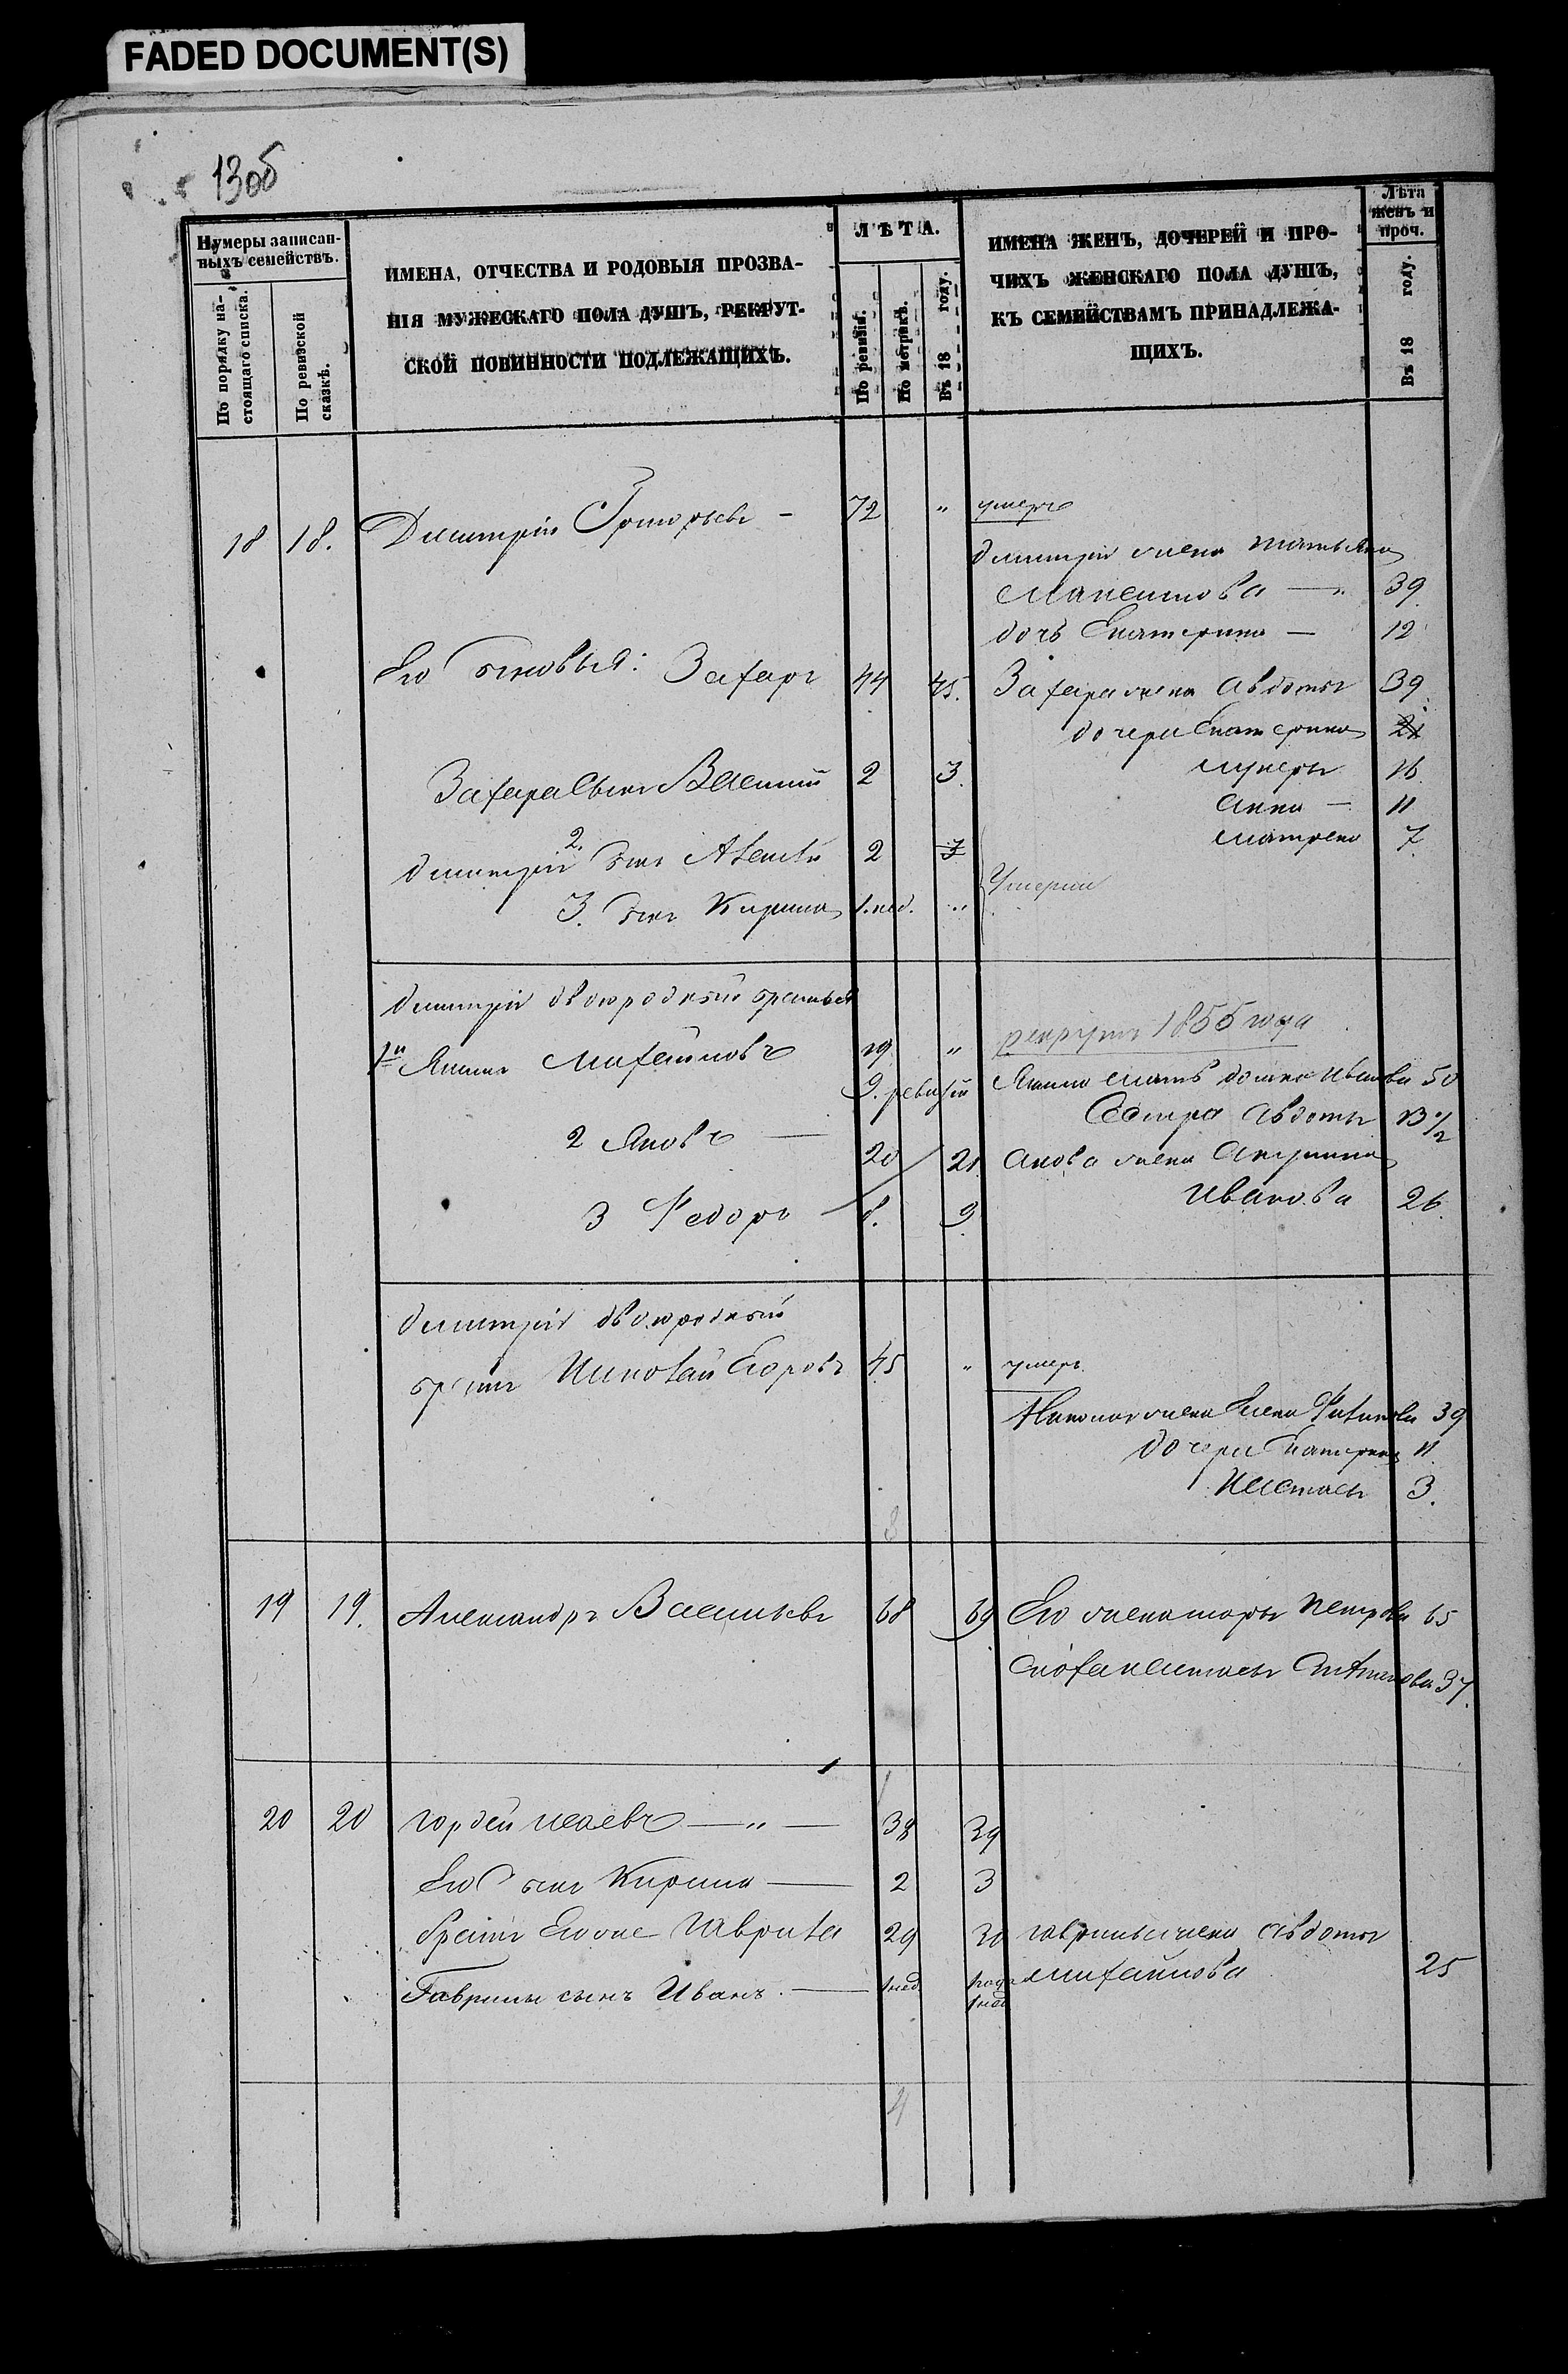 FADED DOCUMENT(S)
13об
Нумеры записан-
ныхъ семействъ.
По порядку на-
стоящаго списка.
По ревизской
сказкѣ.
ИМЕНА, ОТЧЕСТВА И РОДОВЫЯ ПРОЗВА-
НІЯ МУЖЕСКАГО ПОЛА ДУШЪ, РЕКРУТ-
СКОЙ ПОВИННОСТИ ПОДЛЕЖАЩИХЪ.
ЛѢТА.
По ревизіи.
По метрикѣ.
Въ 18 году.
ИМЕНА ЖЕНЪ, ДОЧЕРЕЙ И ПРО-
ЧИХЪ ЖЕНСКАГО ПОЛА ДУШЪ,
КЪ СЕМЕЙСТВАМЪ ПРИНАДЛЕЖА-
ЩИХЪ.
Лѣта
женъ и
проч.
Въ 18 году.
18 18. Дмитрій Григорьевъ - 72 " умеръ
Дмитрія жена Татьяна
Максимова — 39
дочь Екатерина — 12
Его сыновья: Захаръ 44 45. Захара жена Авдотья 39
дочери Екатерина 21
16
Захара сынъ Василій 2 3. Анна — 11
Матрена 7
2.
Дмитрія сынъ Алексѣй 2 3
Умерли
3. сынъ Кирила 1. нед. "
Дмитрія двоюродный братья
рекрутъ 1855 года
1й Якимъ Михайловъ 19 "
9. ревизіи Якима мать Ивановна 50
Сестра Авдотья 13 1/2
2 Яковъ — 20 21 Якова жена Акулина
Иванова 26
3 Федоръ 8. 9
Дмитрія двоюродный
братъ Николай Егоровъ 45 " умеръ
Николая жена Елена 39
дочери Екатерина 11
Настасья 3.
8
19 19. Александръ Васильевъ 68 69 Его жена Петрова 65
37.
20 20 Гордей Исаевъ — " — 38 39
Его сынъ Кирила — 2 3
Братъ Его Гаврила 29 30 Гаврилы жена Авдотья
Михайлова 25
Гаврилы сынъ Иванъ — 1 нед. 1 года
1 нед
4